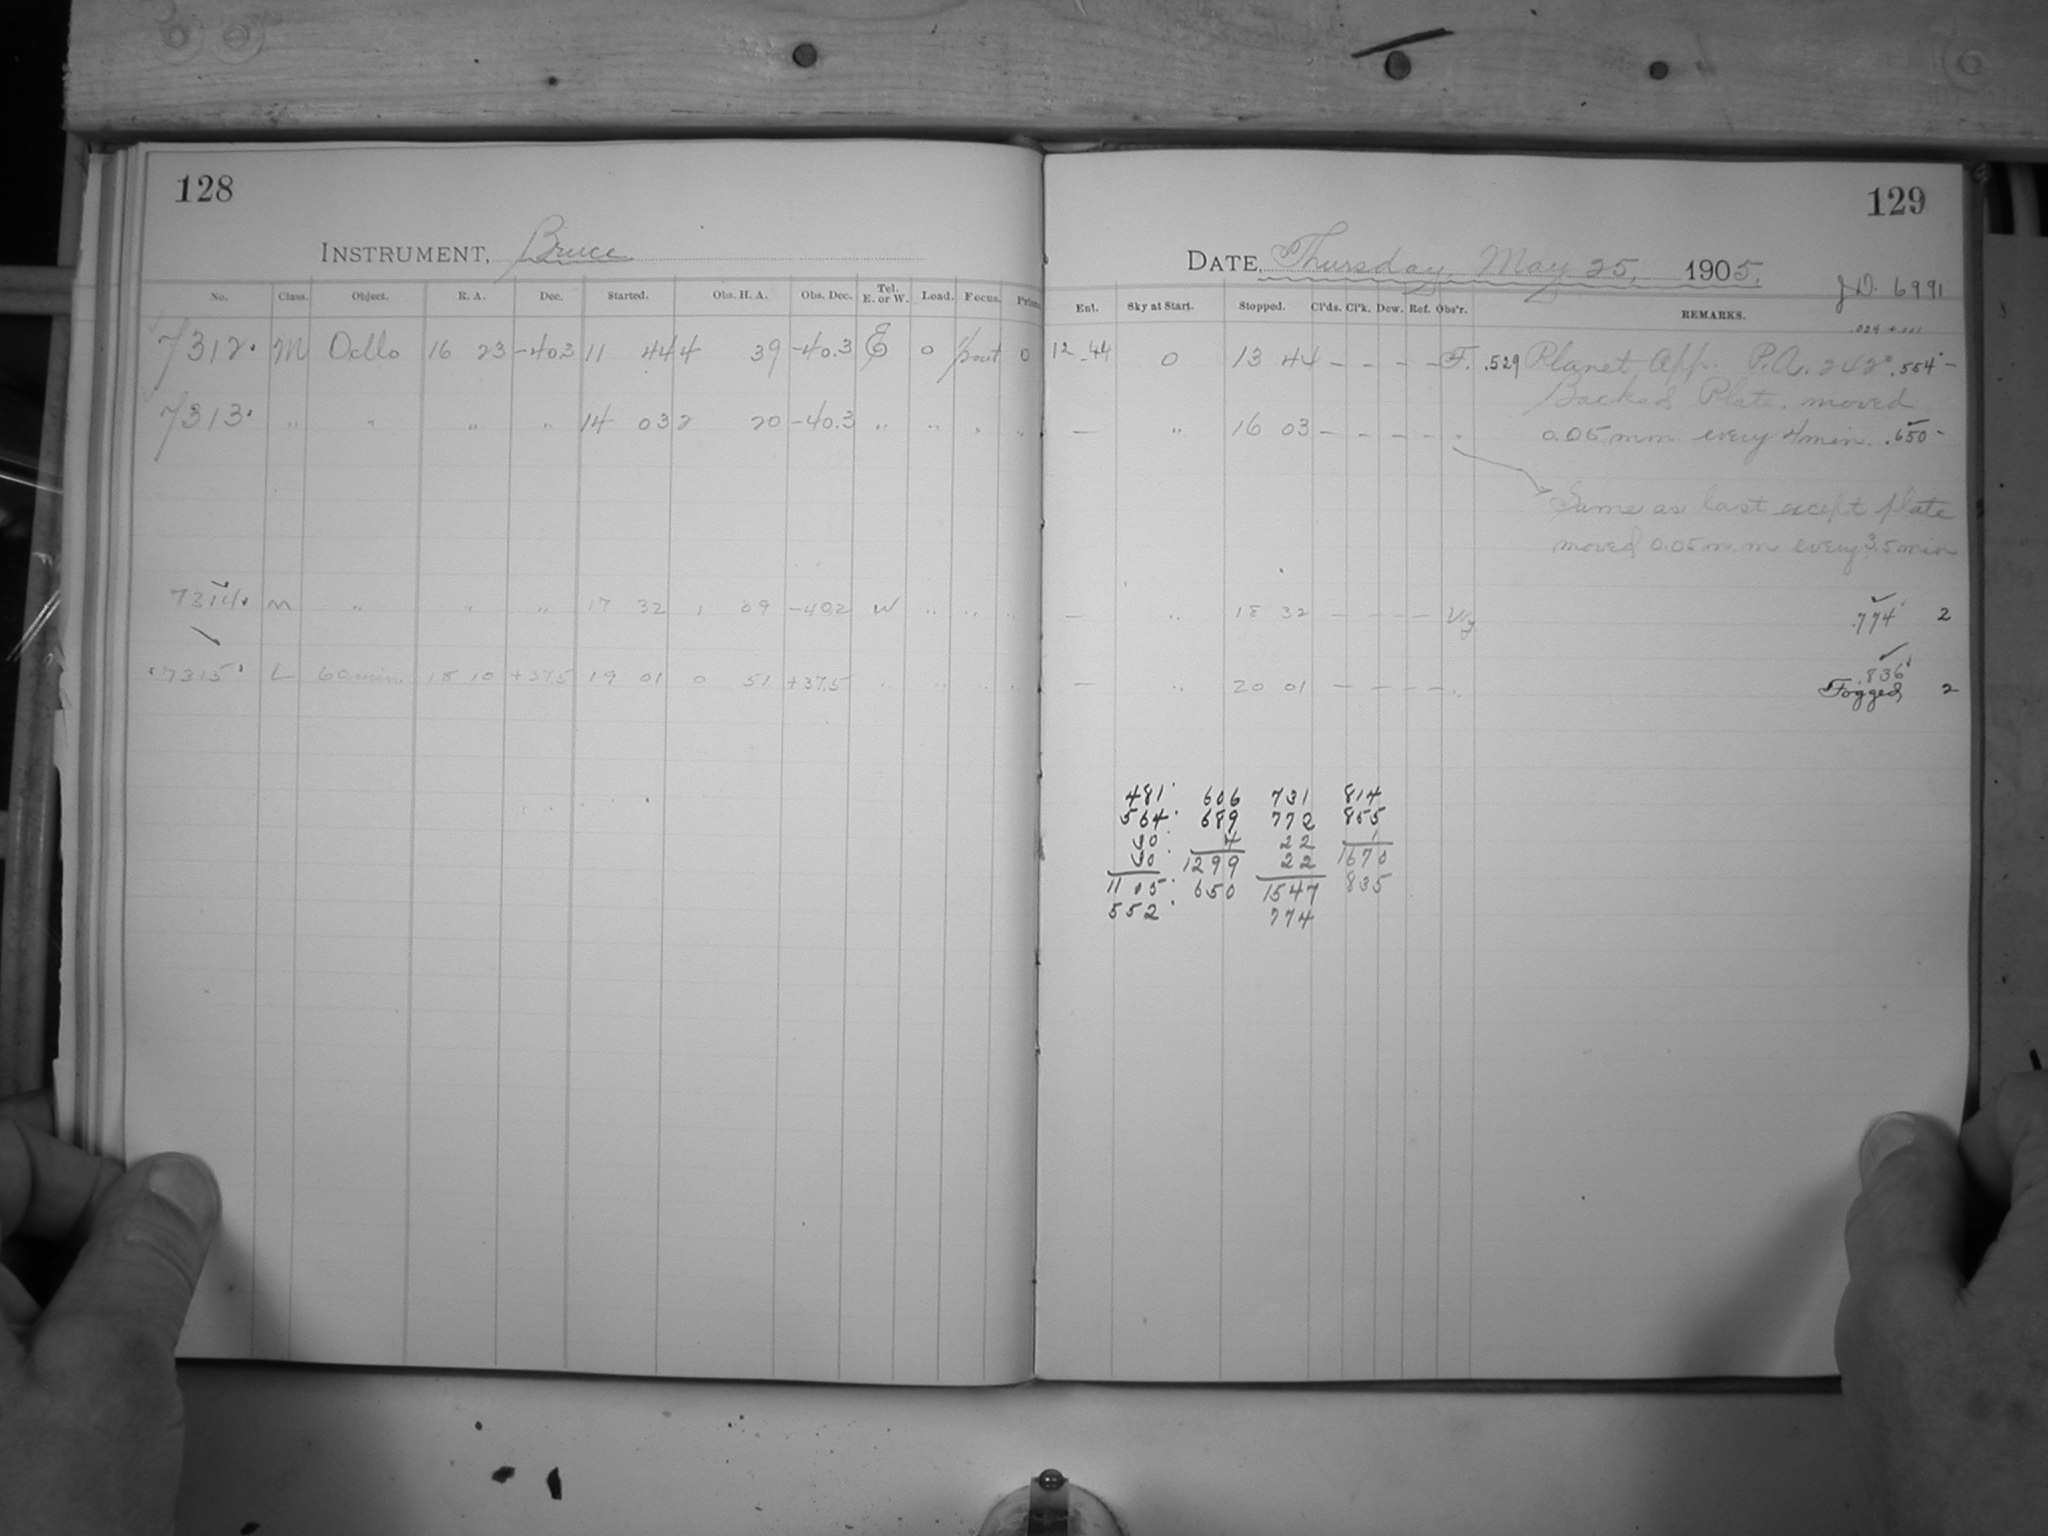 128
INSTRUMENT, Bruce
No. Class. Object. R. A. Dec. Started. Obs. H. A. Obs. Dec. Tel. E. or W. Load. Focus. Prism
7312. M Ocllo 16 23 -40.3 11 44 4 39 -40.3 E 0 0
7313. " " " " 14 03 2 20 -40.3 " " " "
7314. M " " " 17 32 1 09 -40.2 W " " "
7315 L 60 min. 18 10 +37.5 19 01 0 51 +37.5 " " " "
129
DATE, Thursday, May 25, 1905.
J.D. 6991
Ent. Sky at Start. Stopped. Cl'ds. Cl'k. Dew. Ref. Obs'r. REMARKS.
12-44 0 13 44 - - - - F. .529 Planet App. P.A. 242° .554 -
Backed Plate. moved
- " 16 03 - - - - " 0.05 mm every 4 min. .650 -
Same as last except plate
moved 0.05 mm every 3.5 min
- " 18 32 - - - - .774 2
.836
- " 20 01 - - - - " Fogged 2
481 606 731 814
564 689 772 855
30 4 22 1
30 1299 22 1670
1105 650 1547 835
552 774